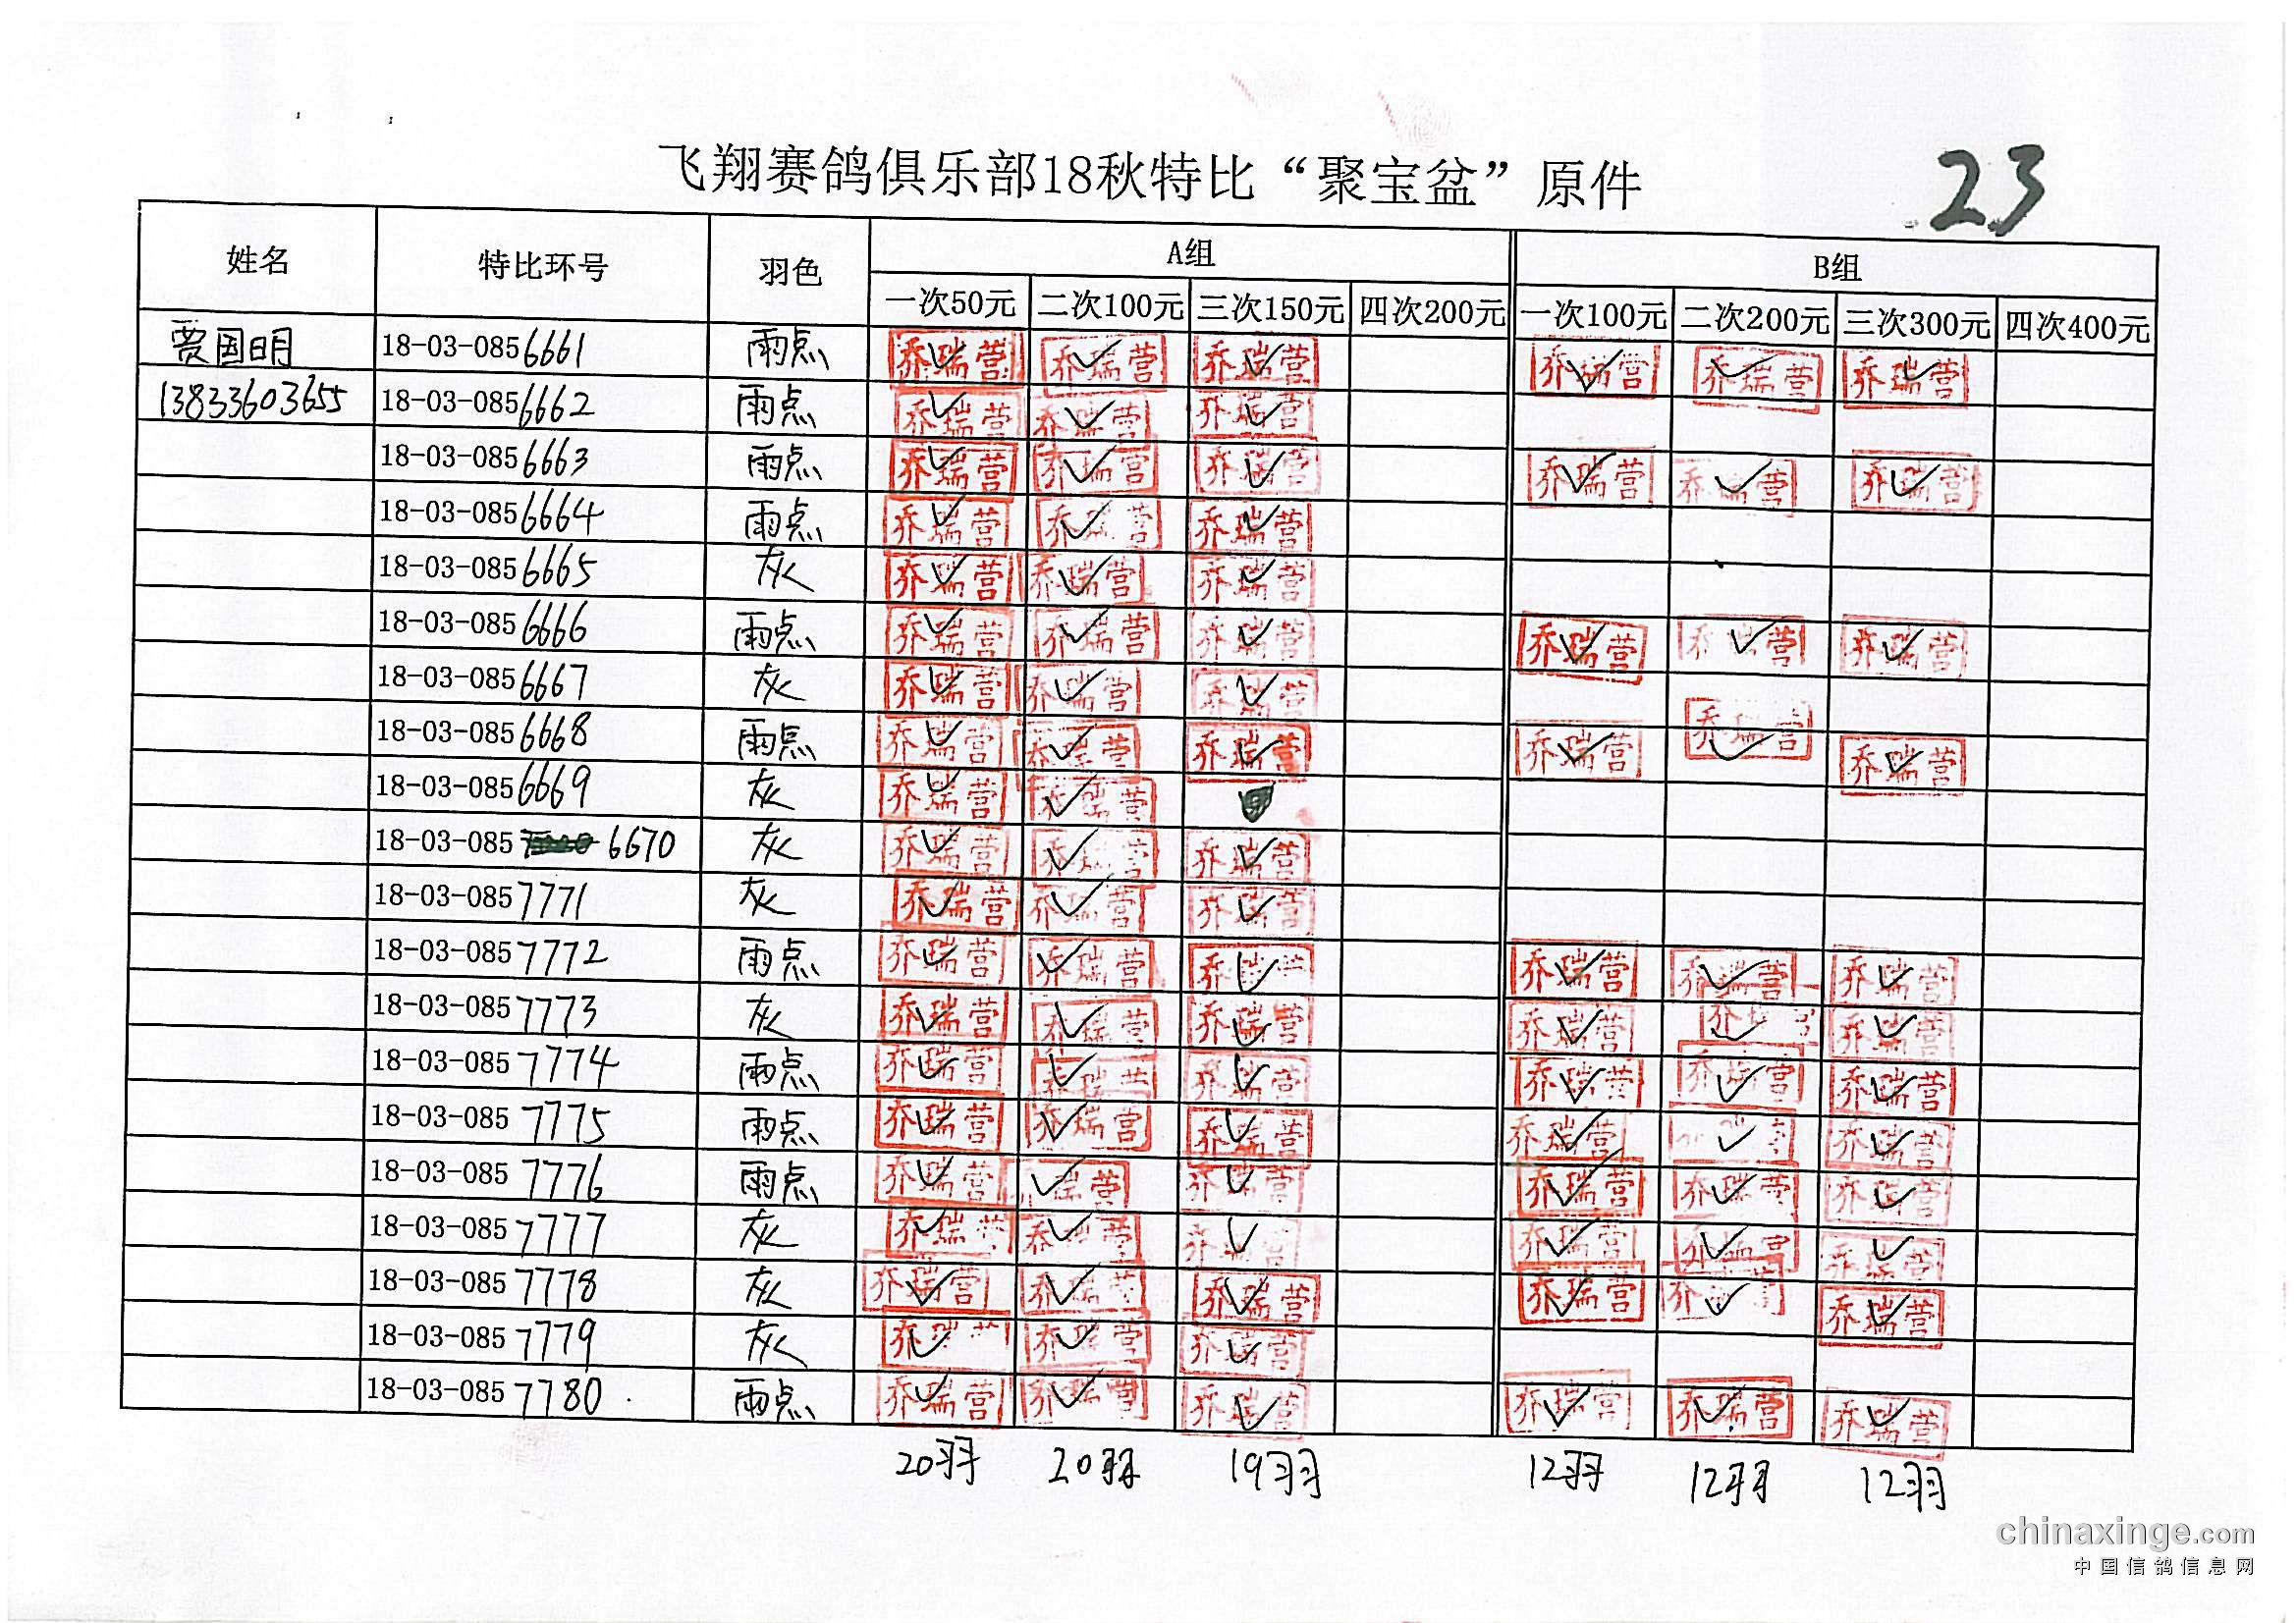 飞翔赛鸽俱乐部18秋特比“聚宝盆”原件 23
姓名 特比环号 羽色 A组 B组
一次50元 二次100元 三次150元 四次200元 一次100元 二次200元 三次300元 四次400元
贾国明 18-03-0856661 雨点 乔瑞营 乔瑞营 乔瑞营 乔瑞营 乔瑞营 乔瑞营
13833603655 18-03-0856662 雨点 乔瑞营 乔瑞营 乔瑞营
18-03-0856663 雨点 乔瑞营 乔瑞营 乔瑞营 乔瑞营 乔瑞营 乔瑞营
18-03-0856664 雨点 乔瑞营 乔瑞营 乔瑞营
18-03-0856665 灰 乔瑞营 乔瑞营 乔瑞营
18-03-0856666 雨点 乔瑞营 乔瑞营 乔瑞营 乔瑞营 乔瑞营 乔瑞营
18-03-0856667 灰 乔瑞营 乔瑞营 乔瑞营
18-03-0856668 雨点 乔瑞营 乔瑞营 乔瑞营 乔瑞营 乔瑞营 乔瑞营
18-03-0856669 灰 乔瑞营 乔瑞营
18-03-085 6670 灰 乔瑞营 乔瑞营 乔瑞营
18-03-0857771 灰 乔瑞营 乔瑞营 乔瑞营
18-03-0857772 雨点 乔瑞营 乔瑞营 乔瑞营 乔瑞营 乔瑞营 乔瑞营
18-03-0857773 灰 乔瑞营 乔瑞营 乔瑞营 乔瑞营 乔瑞营 乔瑞营
18-03-0857774 雨点 乔瑞营 乔瑞营 乔瑞营 乔瑞营 乔瑞营 乔瑞营
18-03-0857775 雨点 乔瑞营 乔瑞营 乔瑞营 乔瑞营 乔瑞营
18-03-0857776 雨点 乔瑞营 乔瑞营 乔瑞营 乔瑞营 乔瑞营 乔瑞营
18-03-0857777 灰 乔瑞营 乔瑞营 乔瑞营 乔瑞营 乔瑞营 乔瑞营
18-03-0857778 灰 乔瑞营 乔瑞营 乔瑞营 乔瑞营 乔瑞营 乔瑞营
18-03-0857779 灰 乔瑞营 乔瑞营 乔瑞营
18-03-0857780 雨点 乔瑞营 乔瑞营 乔瑞营 乔瑞营 乔瑞营 乔瑞营
20羽 20羽 19羽 12羽 12羽 12羽
chinaxinge.com
中国信鸽信息网